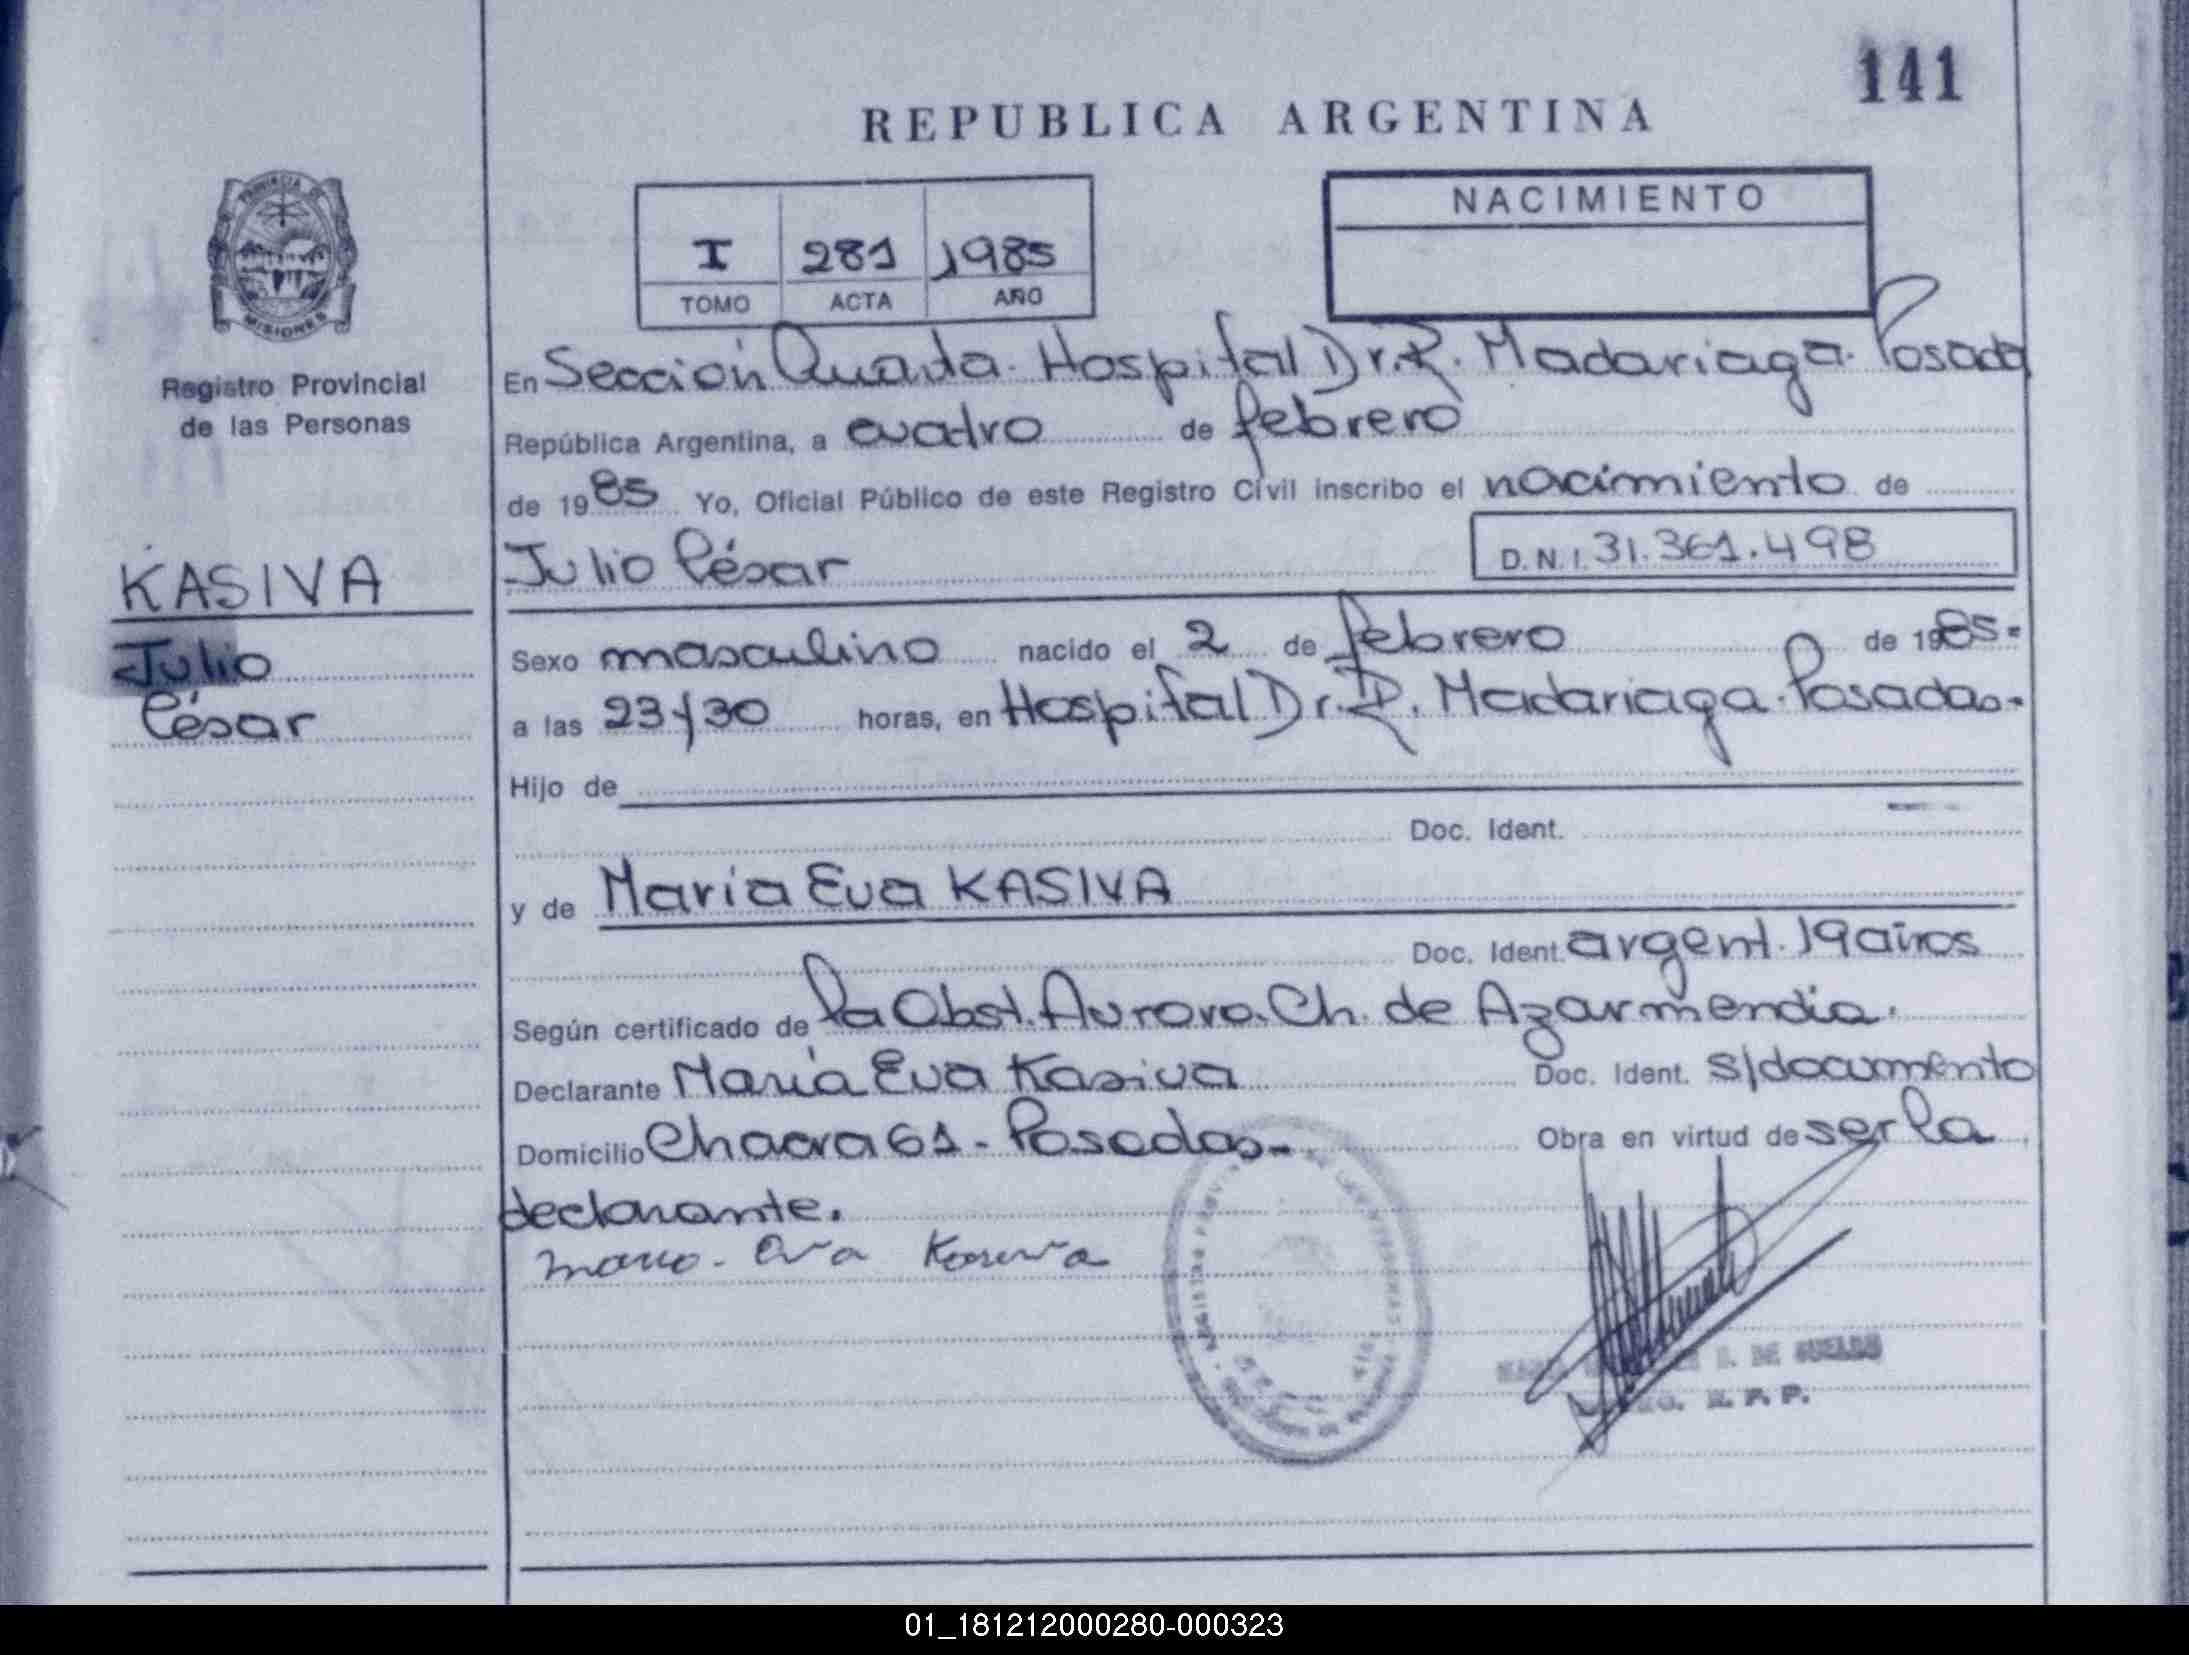 141
REPUBLICA ARGENTINA
PROVINCIA DE
MISIONES
Registro Provincial
de las Personas
I 281 1985
TOMO ACTA AÑO
NACIMIENTO
En Sección Cuarta. Hospital Dr. R. Madariaga. Posadas
República Argentina, a cuatro de febrero
de 1985 Yo, Oficial Público de este Registro Civil inscribo el nacimiento de
KASIVA
Julio
César
Julio César
D.N.I. 31.361.498
Sexo masculino nacido el 2 de febrero de 1985.
a las 23/30 horas, en Hospital Dr. R. Madariaga. Posadas.
Hijo de
Doc. Ident.
y de María Eva KASIVA
Doc. Ident. argent. 19 años
Según certificado de la Obst. Aurora Ch. de Azarmendia.
Declarante María Eva Kasiva Doc. Ident. s/documento
Domicilio Chacra 61 - Posadas - Obra en virtud de ser la
declarante.
maria. Eva Kasiva
DE SUELDO
R. P. P.
01_181212000280-000323